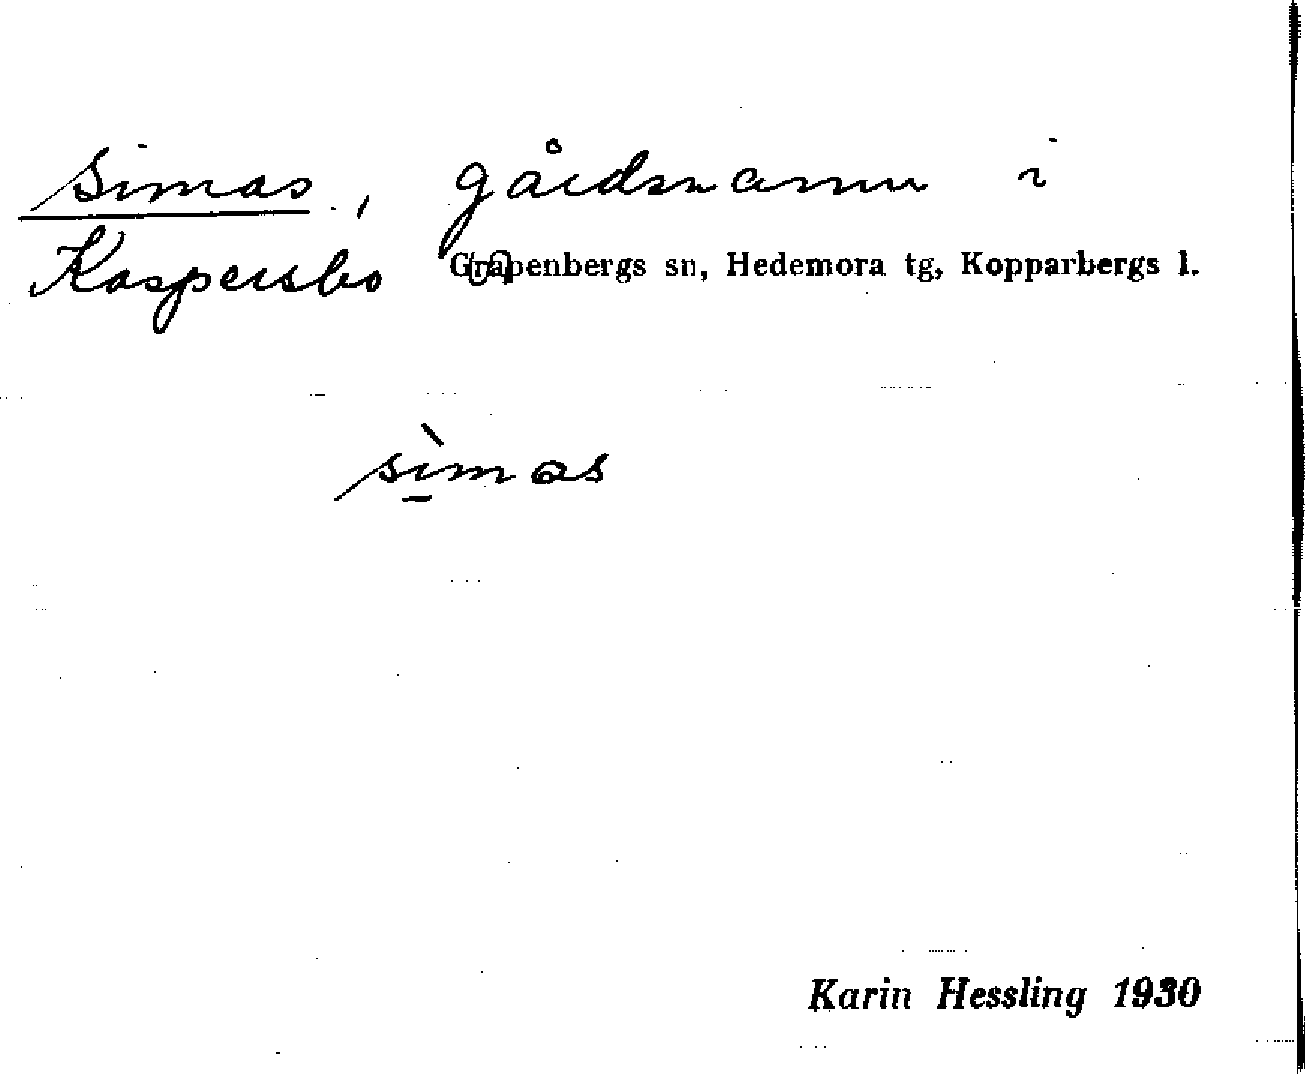 Simas, gårdsnamn i
Kaspersbo Grapenbergs sn, Hedemora tg, Kopparbergs l.
sìmas
Karin Hessling 1930